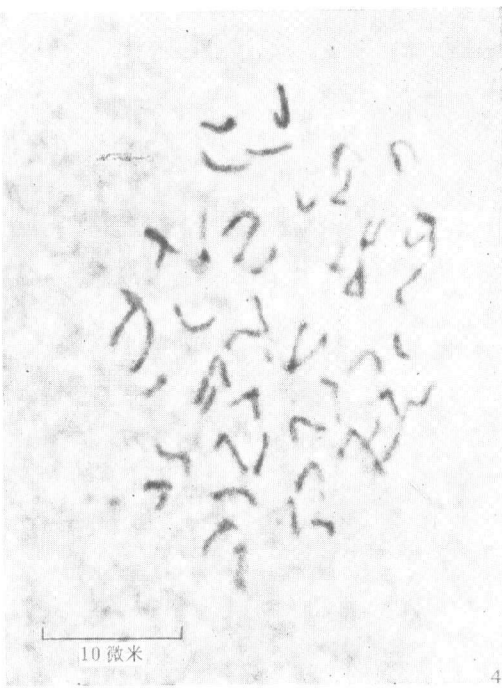 10 微米
4